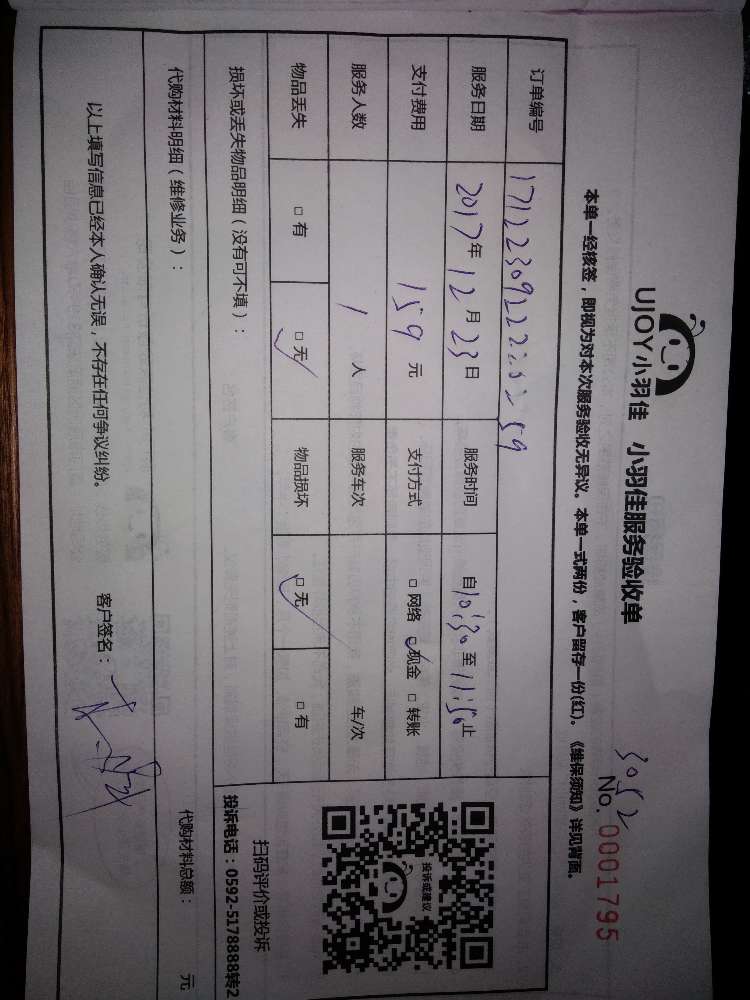 UJOY小羽佳 小羽佳服务验收单
3052
No. 0001795
本单一经核签，即视为对本次服务验收无异议。本单一式两份，客户留存一份(红)。《维保须知》详见背面。
订单编号
服务日期 2017年 12月 23日 服务时间 自10:30至11:50止
支付费用 159 元 支付方式 □ 网络 ☑ 现金 □ 转账
服务人数 1 人 服务车次 车/次
物品丢失 □ 有 ☑ 无 物品损坏 ☑ 无 □ 有
投诉或建议
扫码评价或投诉
投诉电话：0592-5178888转2
损坏或丢失物品明细（没有可不填）：
代购材料明细（维修业务）： 代购材料总额： 元
以上填写信息已经本人确认无误，不存在任何争议纠纷。 客户签名：